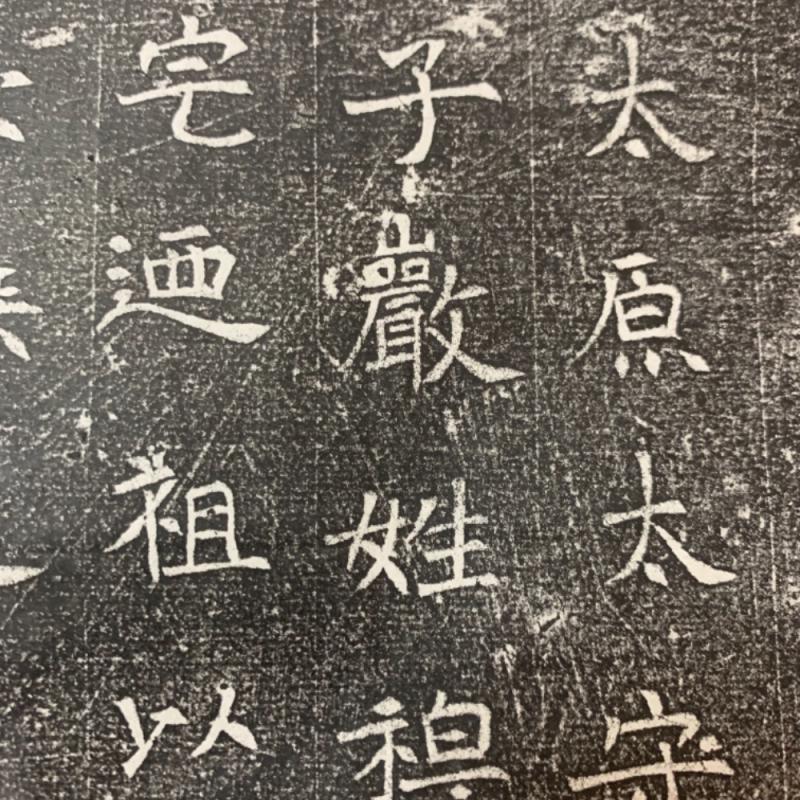 太原太守
子巖姓穆
宅迺祖以